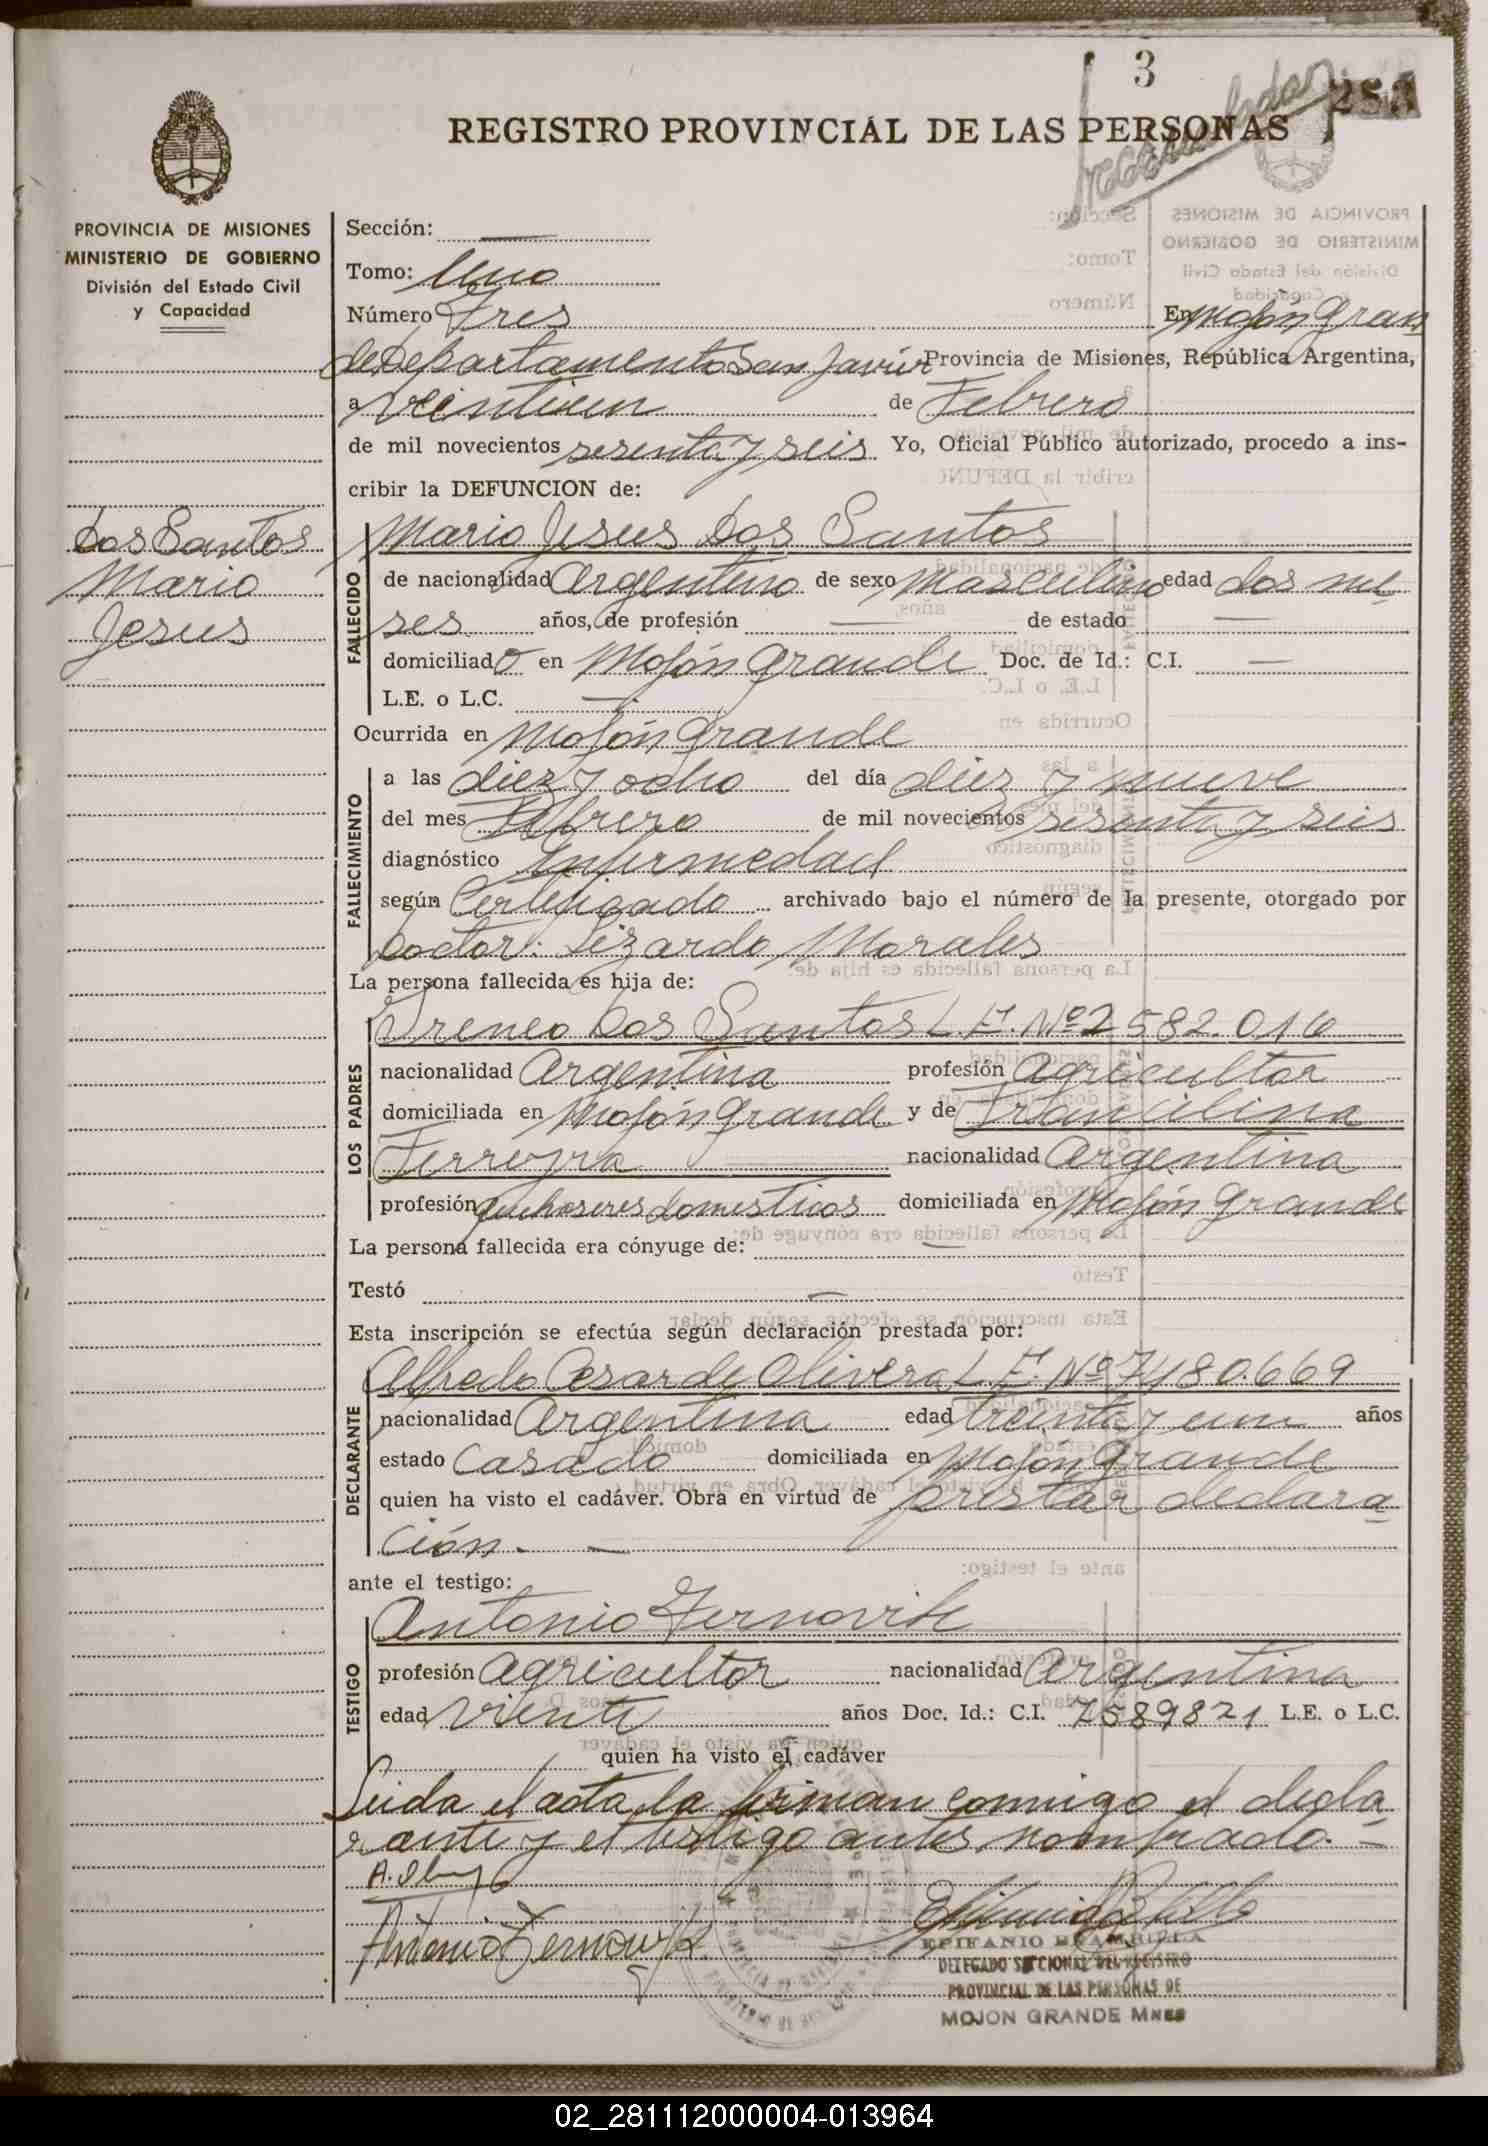 3
REGISTRO PROVINCIAL DE LAS PERSONAS
PROVINCIA DE MISIONES
MINISTERIO DE GOBIERNO
División del Estado Civil
y Capacidad
Dos Santos
Mario
Jesus
Sección: —
Tomo: Uno
Número Tres En Mojón Gran
de Departamento San Javier Provincia de Misiones, República Argentina,
a veintiun de Febrero
de mil novecientos sesenta y seis Yo, Oficial Público autorizado, procedo a ins-
cribir la DEFUNCION de:
FALLECIDO
Mario Jesus Dos Santos
de nacionalidad Argentino de sexo Masculino edad dos me
ses años, de profesión — de estado —
domiciliado en Mojón Grande Doc. de Id.: C.I. —
L.E. o L.C. —
Ocurrida en Mojón Grande
FALLECIMIENTO
a las diez y ocho del día diez y nueve
del mes Febrero de mil novecientos sesenta y seis
diagnóstico Enfermedad
según Certificado archivado bajo el número de la presente, otorgado por
Doctor: Lizardo Morales
La persona fallecida es hija de:
LOS PADRES
Ireneo Dos Santos L.E. Nº 2582.016
nacionalidad Argentina profesión Agricultor
domiciliada en Mojón Grande y de Francilina
Ferreyra nacionalidad Argentina
profesión quehaseres domesticos domiciliada en Mojón Grande
La persona fallecida era cónyuge de: —
Testó —
Esta inscripción se efectúa según declaración prestada por:
DECLARANTE
Alfredo Cesar de Olivera L.E. Nº 7480.669
nacionalidad Argentina edad treinta y un años
estado Casado domiciliada en Mojón Grande
quien ha visto el cadáver. Obra en virtud de prestar declara
ción. —
ante el testigo:
TESTIGO
Antonio
profesión Agricultor nacionalidad Argentina
edad vienti años Doc. Id.: C.I. 7589871 L.E. o L.C.
quien ha visto el cadáver
Leida el acta, la firman conmigo el decla
rante y el testigo antes nombrado. —
Antonio
EPIFANIO
DELEGADO SECCIONAL DEL REGISTRO
PROVINCIAL DE LAS PERSONAS DE
MOJON GRANDE MNES
02_281112000004-013964